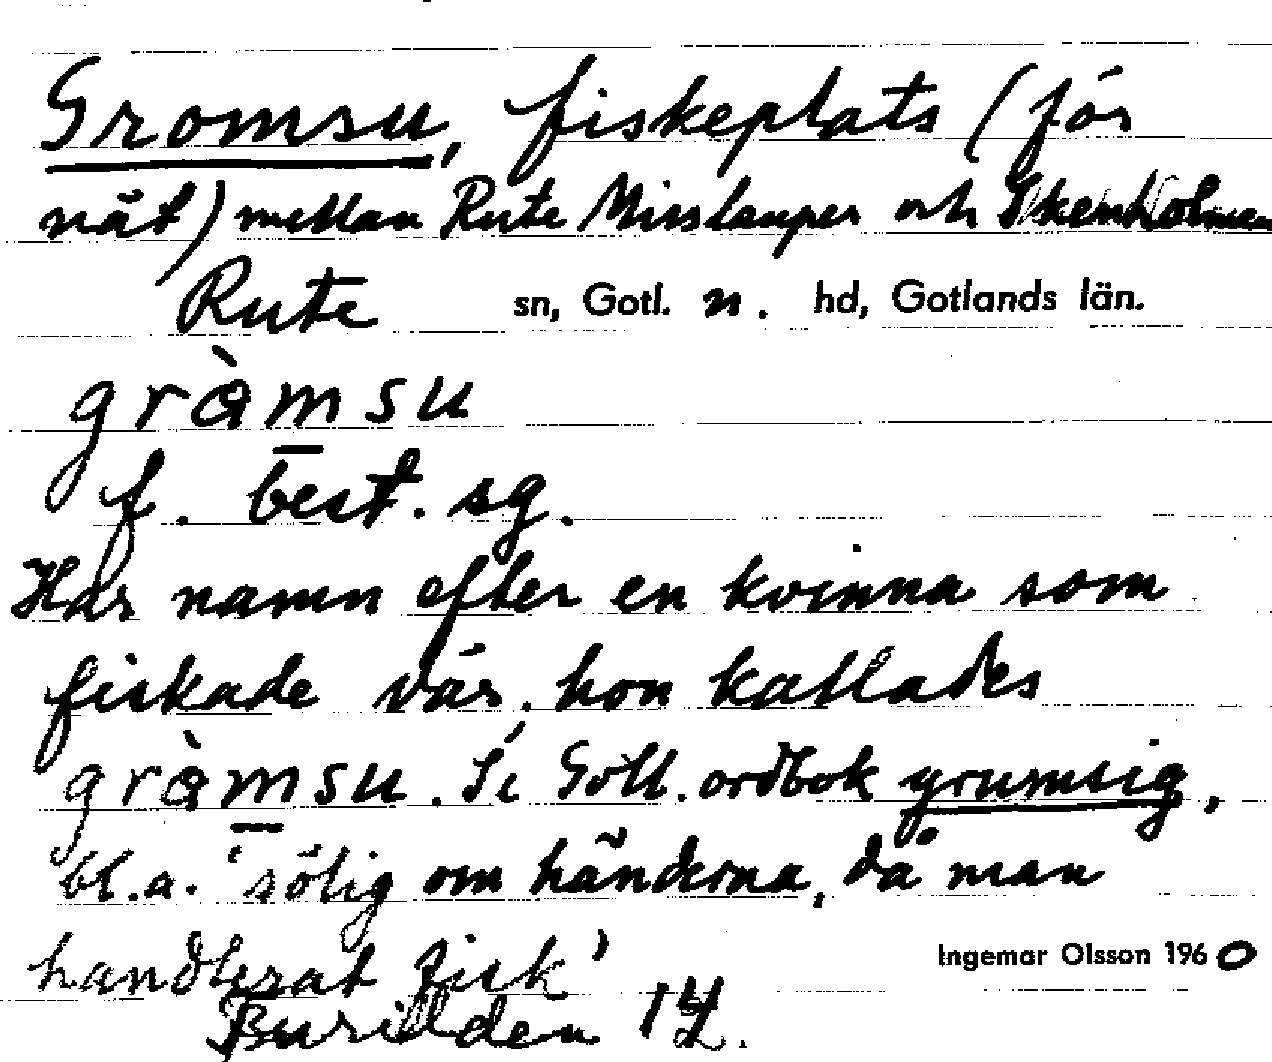 Gromsu, fiskeplats (för
nät) mellan Rute Misslauper och Skenholmen
Rute sn, Gotl. n. hd, Gotlands län.
gràmsu
f. best. sg.
Har namn efter en kvinna som
fiskade där, hon kallades
gràmsu. Se Gotl. ordbok grumsig,
bl.a. 'sölig om händerna, då man
handterat fisk'
Ingemar Olsson 1960